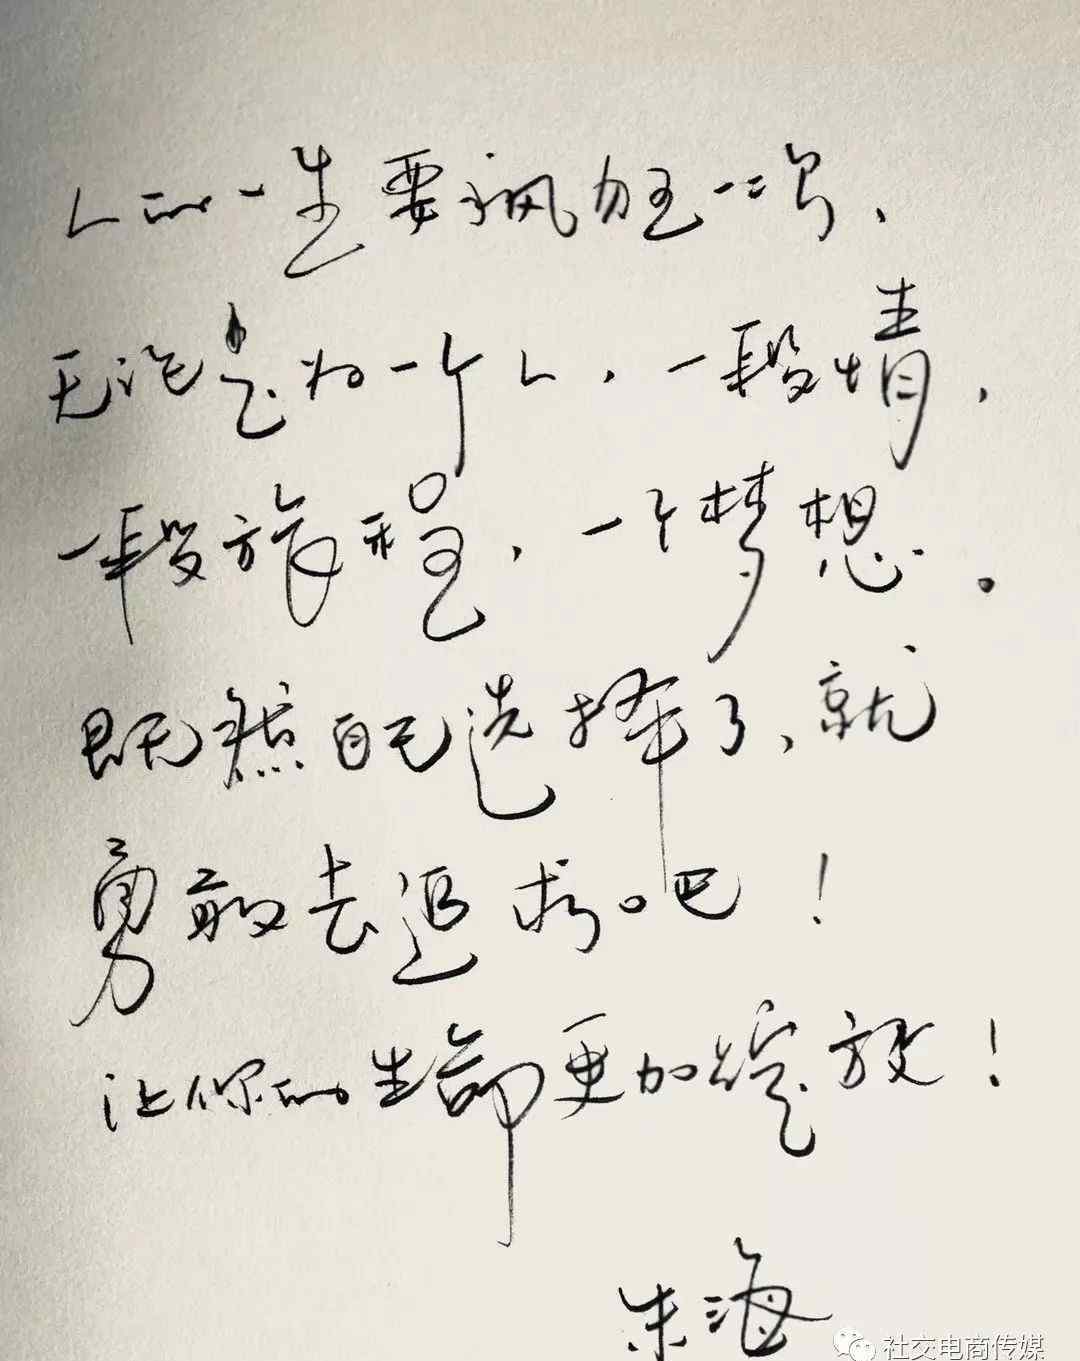 人的一生要疯狂一次、
无论是为一个人、一段情，
一段旅程，一个梦想。
既然自己选择了、就
勇敢去追求吧！
让你的生命更加绽放！
朱海
社交电商传媒